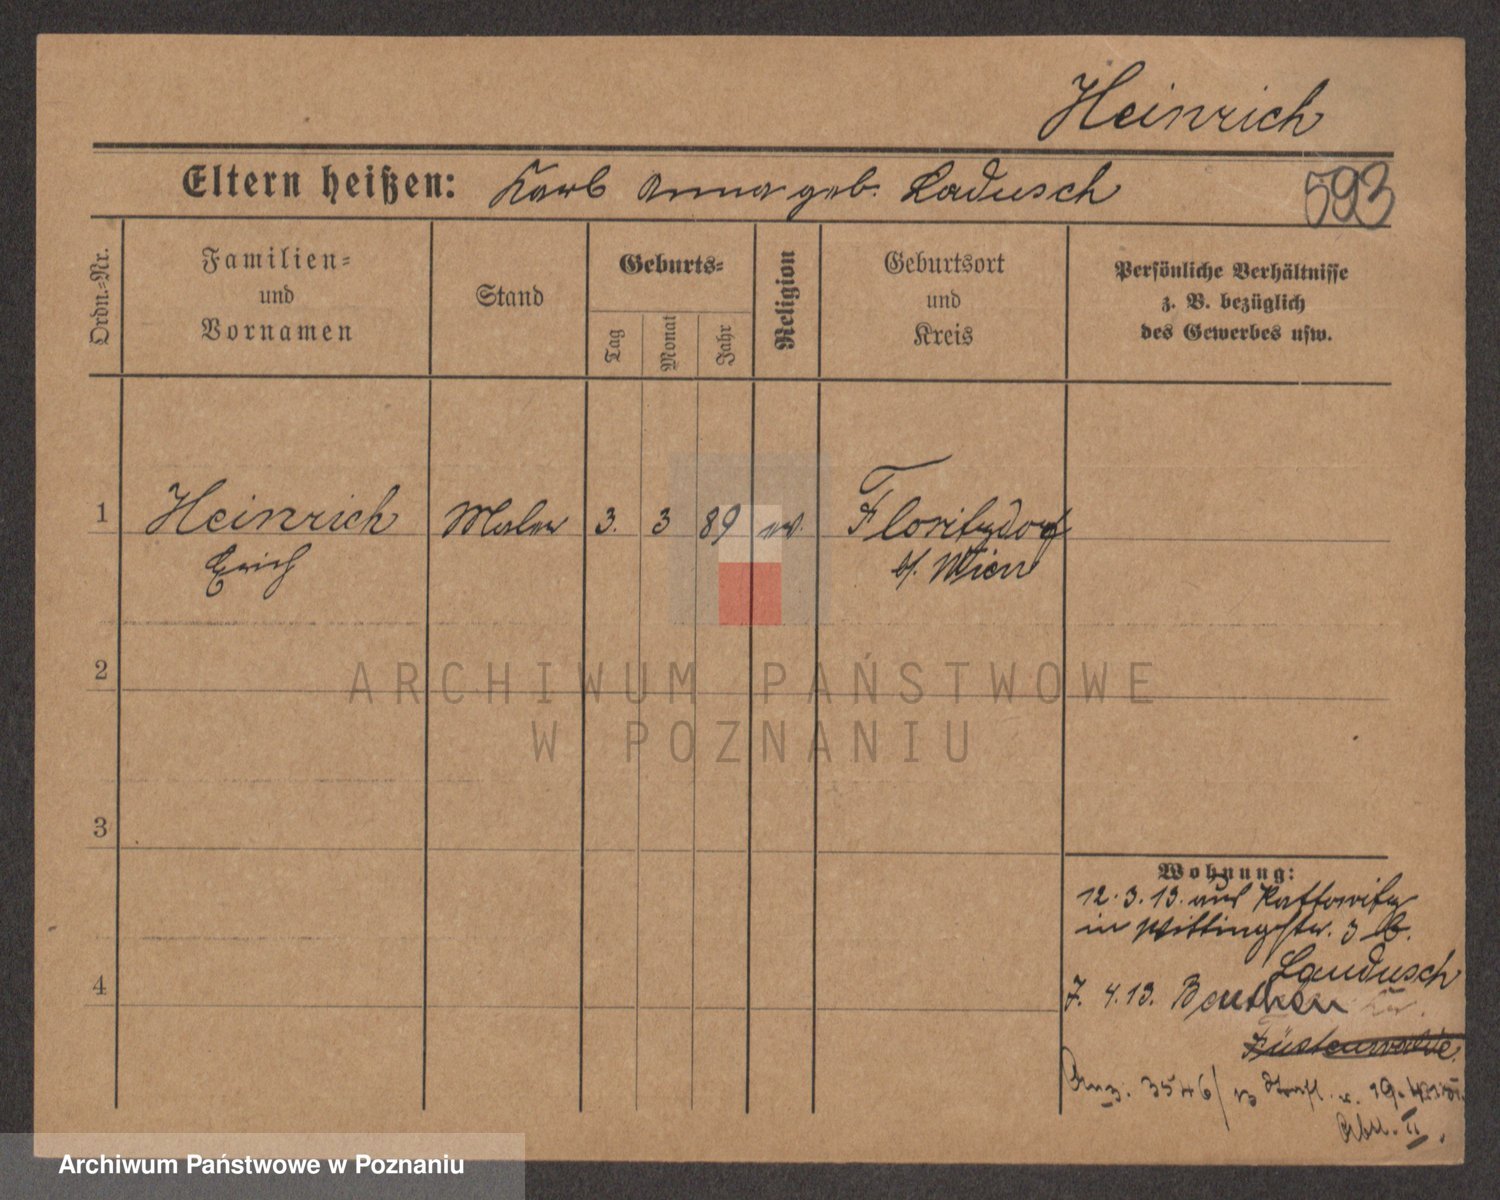 Heinrich
Eltern heißen: Karl Anna geb. Ladusch
593
Ordn.-Nr.
Familien-
und
Vornamen
Stand
Geburts-
Tag
Monat
Jahr
Religion
Geburtsort
und
Kreis
Persönliche Verhältnisse
z. B. bezüglich
des Gewerbes usw.
1 Heinrich Maler 3. 3 89 ev. Floritzdorf
Erich b/. Wien
2
3
4
ARCHIWUM PAŃSTWOWE
W POZNANIU
Wohnung:
12.3.13. aus Kattowitz
in Wittingstr. 3 b.
Landusch
7. 4.13. Beuthen
Füstenwalde
3546/13
II.
Archiwum Państwowe w Poznaniu